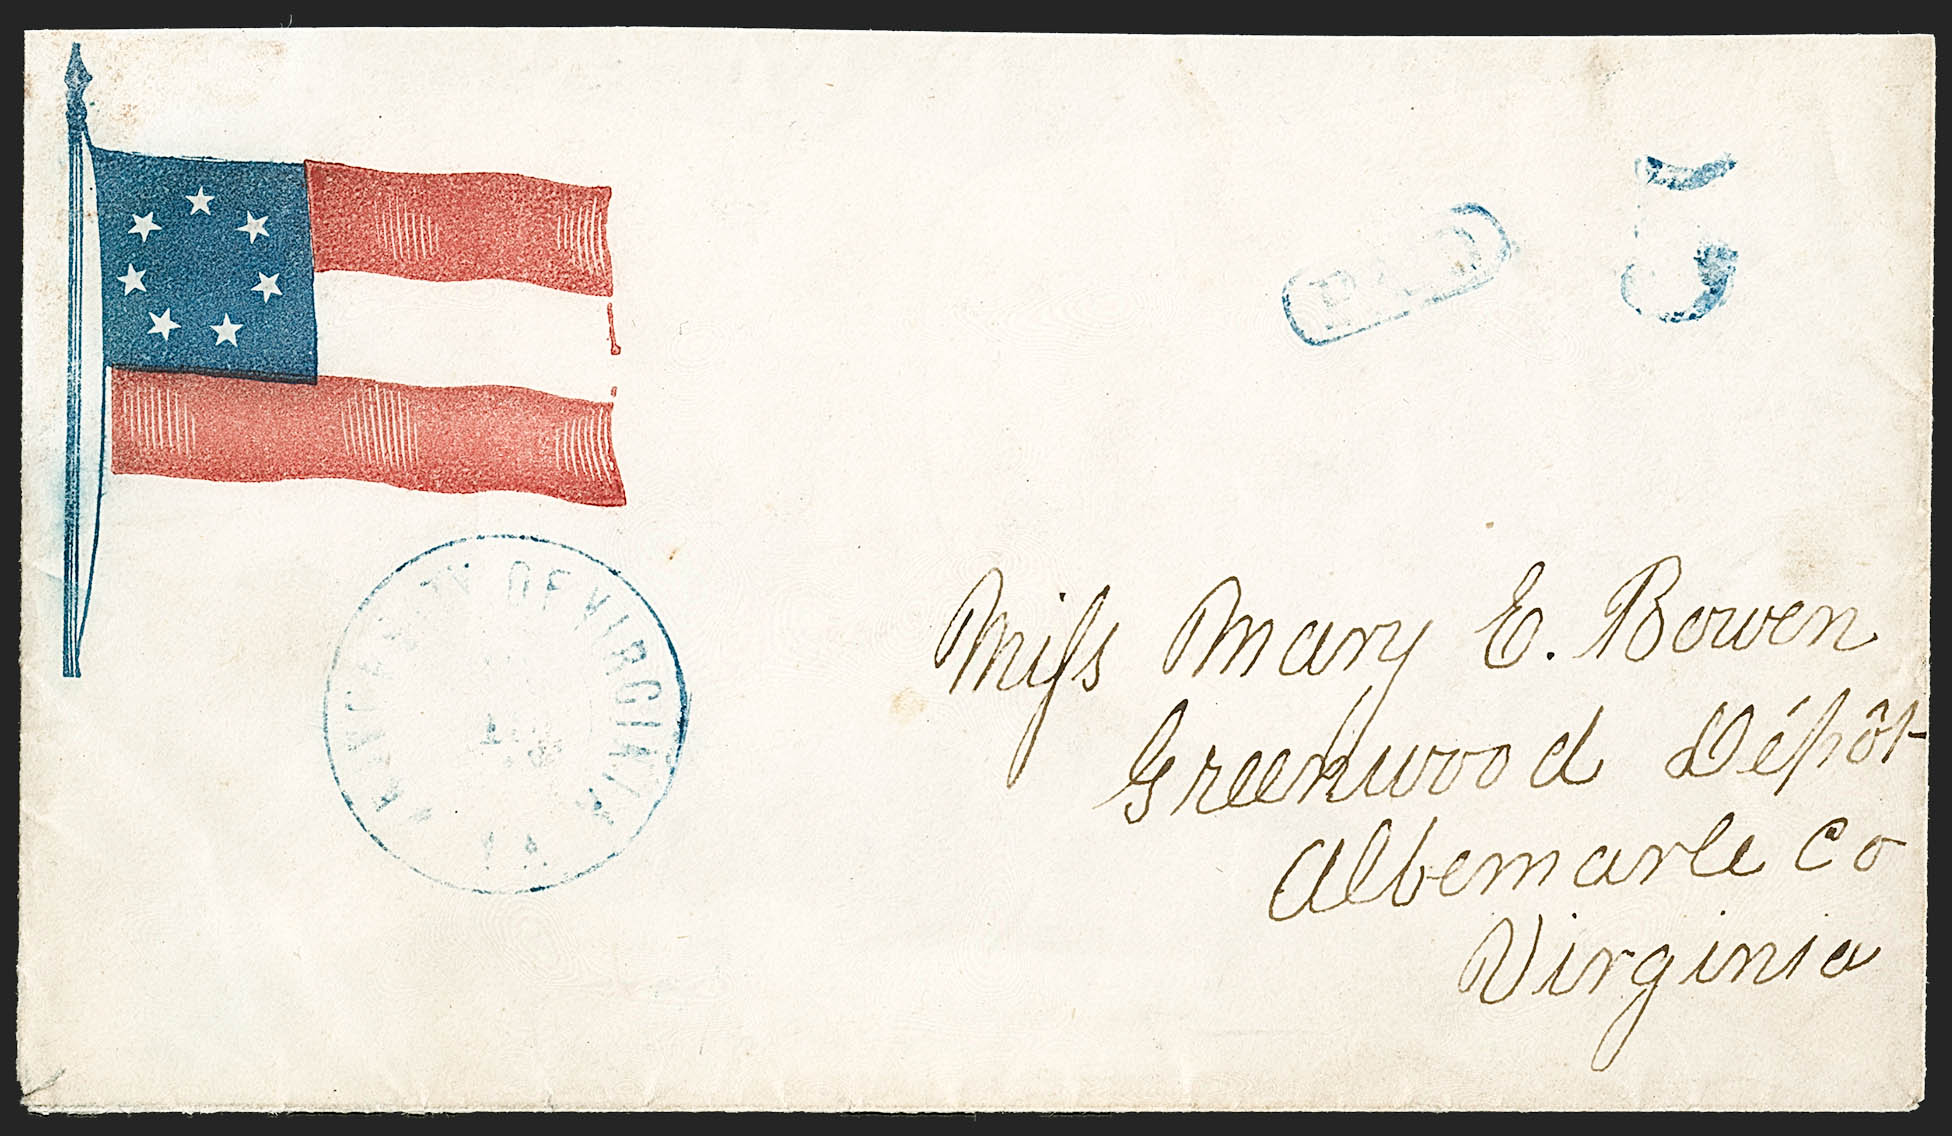 5
PAID
UNIVERSITY OF VIRGINIA
VA
Miss Mary E. Bowen
Greenwood Dépôt
Albemarle Co
Virginia